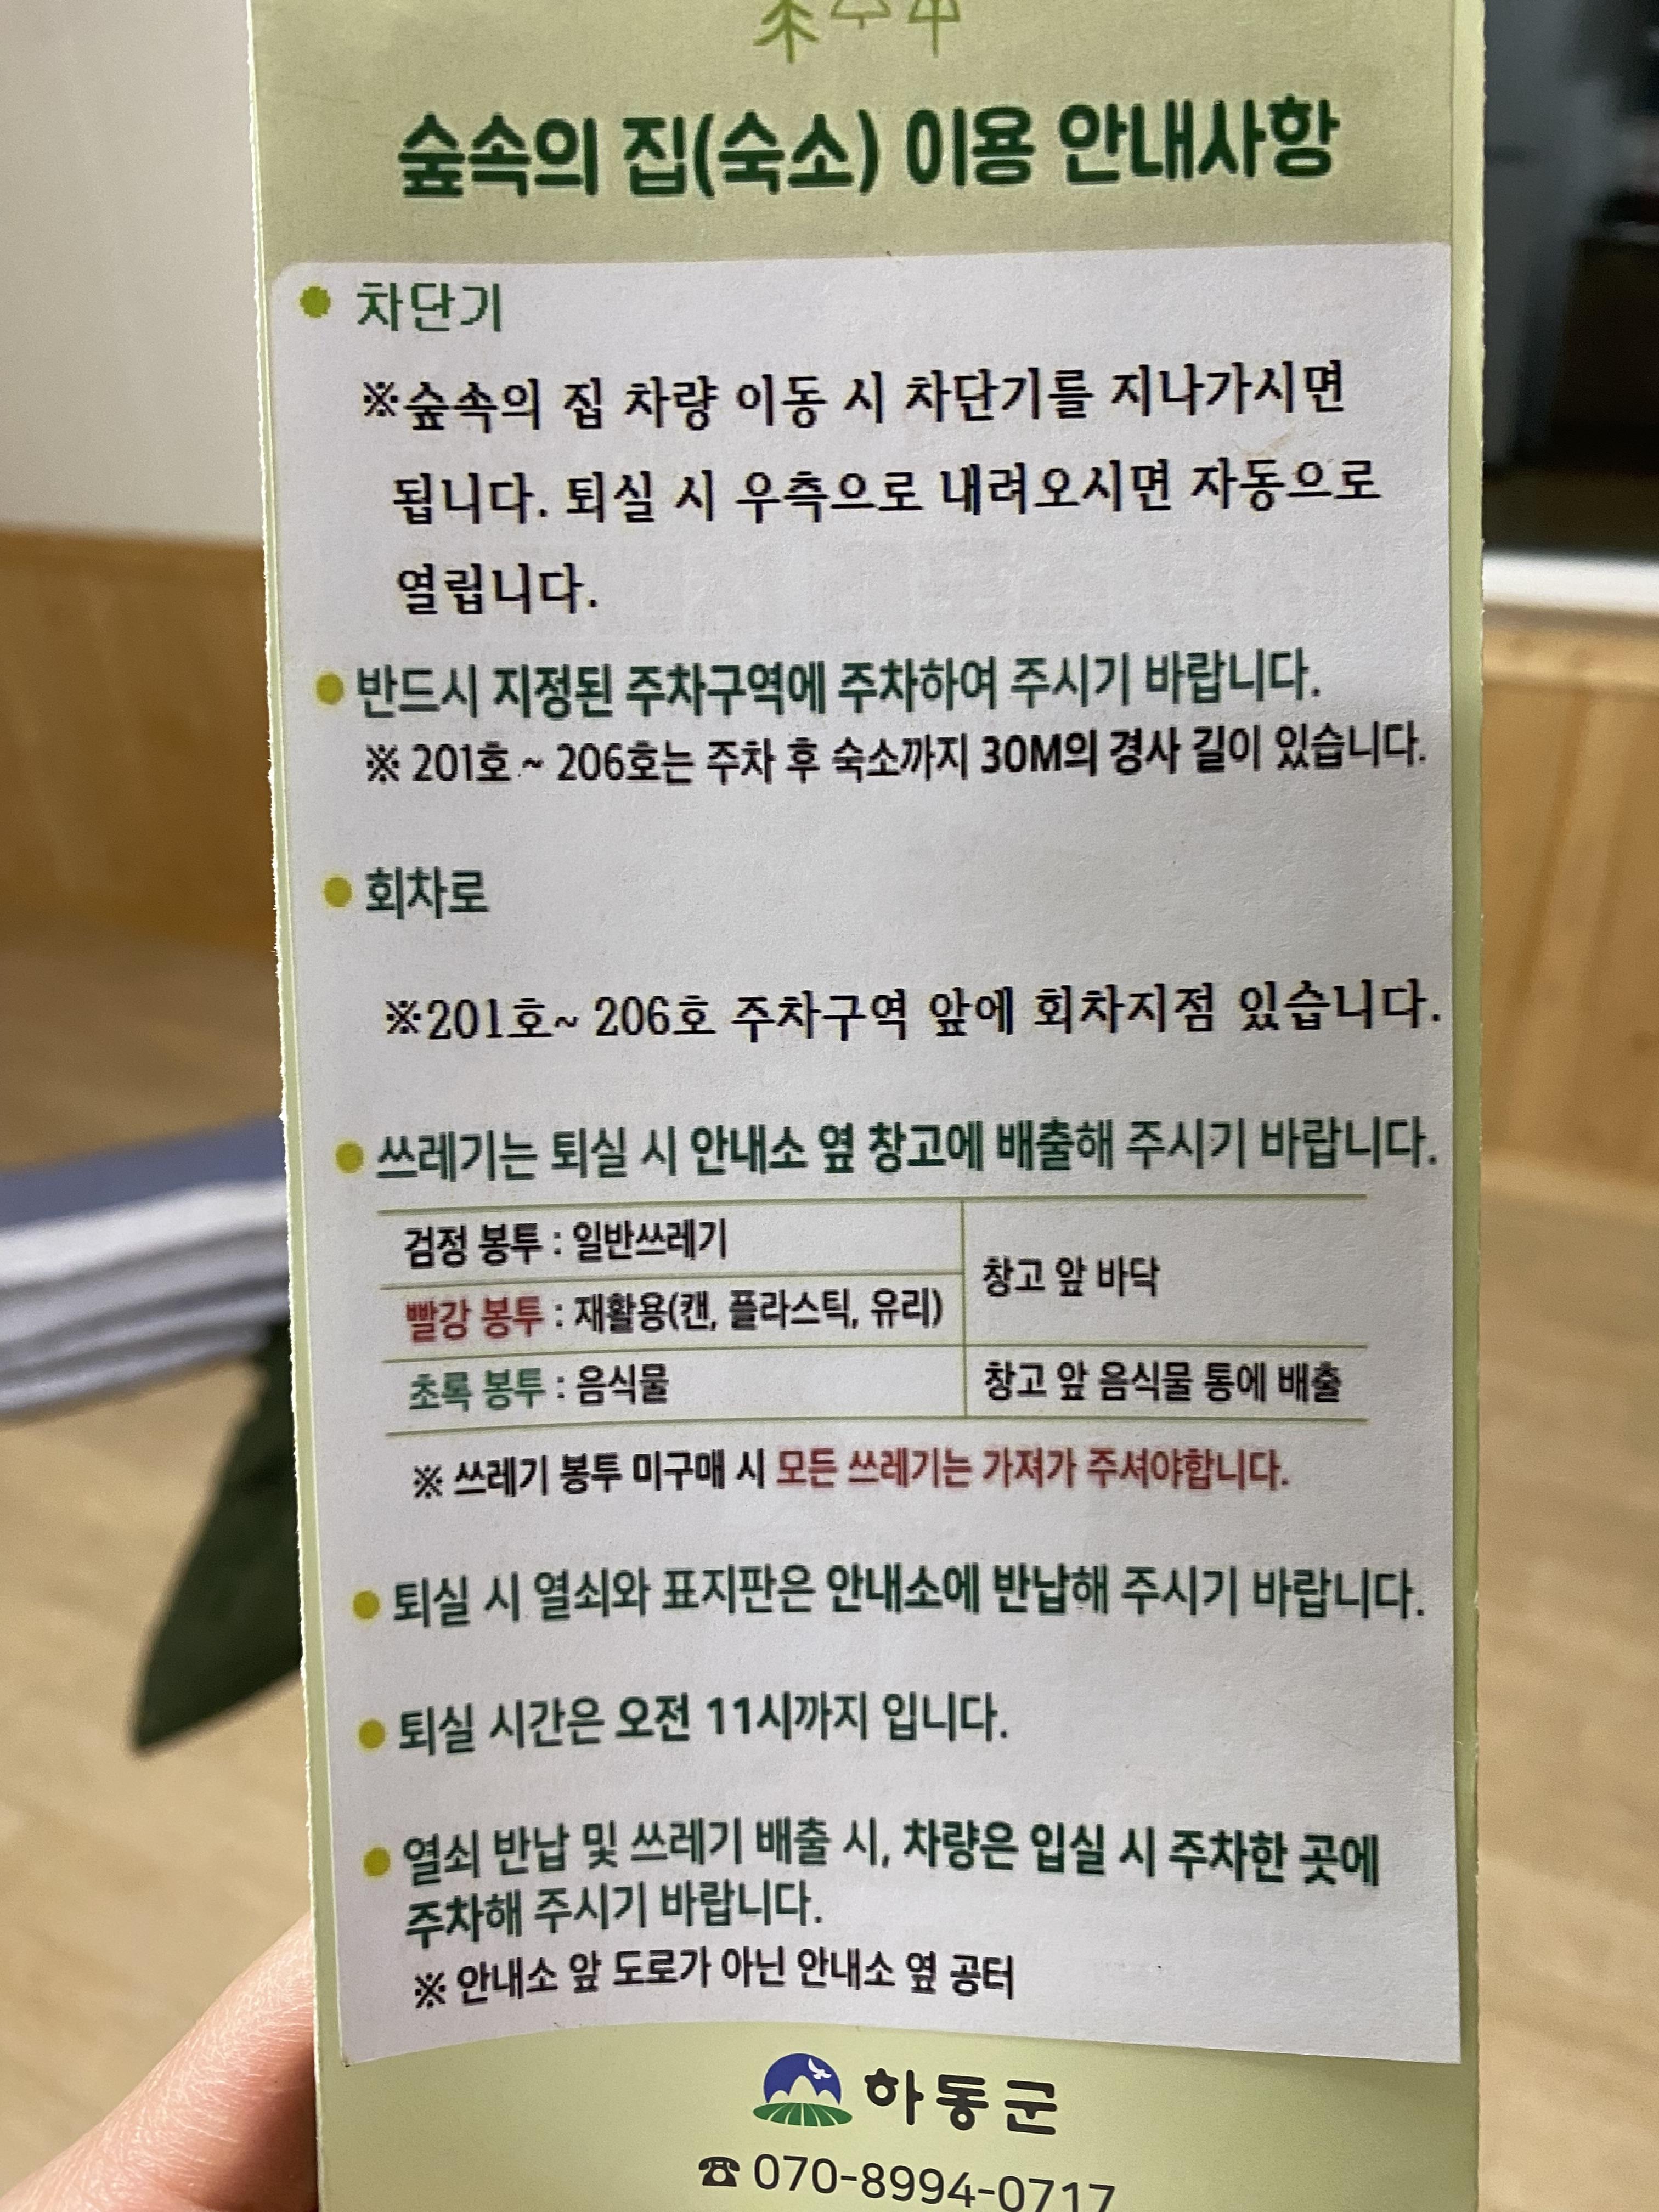 숲속의 집(숙소) 이용 안내사항
● 차단기
※숲속의 집 차량 이동 시 차단기를 지나가시면
됩니다. 퇴실 시 우측으로 내려오시면 자동으로
열립니다.
● 반드시 지정된 주차구역에 주차하여 주시기 바랍니다.
※ 201호 ~ 206호는 주차 후 숙소까지 30M의 경사 길이 있습니다.
● 회차로
※201호~ 206호 주차구역 앞에 회차지점 있습니다.
● 쓰레기는 퇴실 시 안내소 옆 창고에 배출해 주시기 바랍니다.
검정 봉투 : 일반쓰레기
창고 앞 바닥
빨강 봉투 : 재활용(캔, 플라스틱, 유리)
초록 봉투 : 음식물 창고 앞 음식물 통에 배출
※ 쓰레기 봉투 미구매 시 모든 쓰레기는 가져가 주셔야합니다.
● 퇴실 시 열쇠와 표지판은 안내소에 반납해 주시기 바랍니다.
● 퇴실 시간은 오전 11시까지 입니다.
● 열쇠 반납 및 쓰레기 배출 시, 차량은 입실 시 주차한 곳에
주차해 주시기 바랍니다.
※ 안내소 앞 도로가 아닌 안내소 옆 공터
하동군
☎ 070-8994-0717